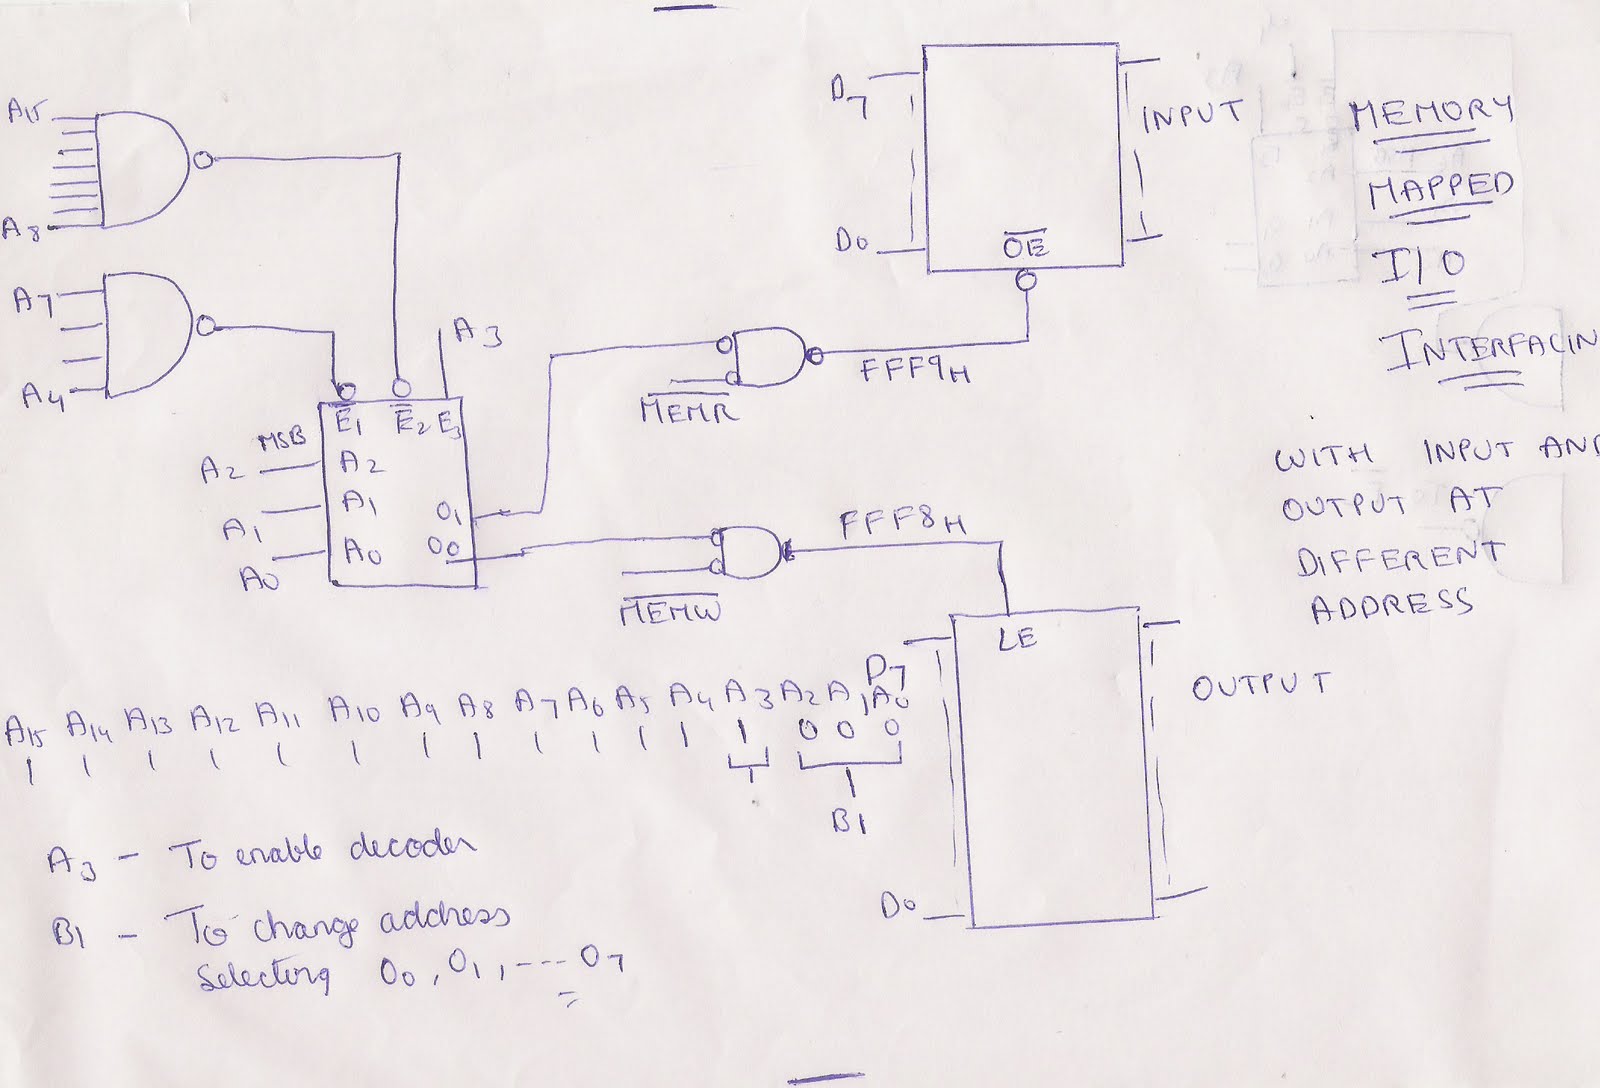 A15
A8
A7
A4
A3
MSB
E̅1 E̅2 E3
A2 A2
A1 A1
A0 A0
O1
O0
D7
D0
O̅E̅
INPUT
M̅E̅M̅R̅
FFF9H
M̅E̅M̅W̅
FFF8H
LE
D7
D0
OUTPUT
MEMORY
MAPPED
I/O
INTERFACIN
WITH INPUT AND
OUTPUT AT
DIFFERENT
ADDRESS
A15 A14 A13 A12 A11 A10 A9 A8 A7 A6 A5 A4 A3 A2 A1 A0
1 1 1 1 1 1 1 1 1 1 1 1 1 0 0 0
B1
A3 - To enable decoder
B1 - To change address
Selecting O0, O1, --- O7